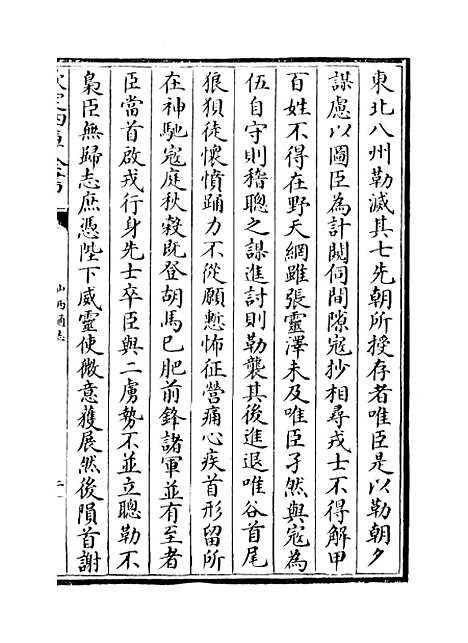 東北八州勒滅其七先朝所授存者唯臣是以勒朝夕
謀慮以圖臣為計闚伺間隙寇抄相尋戎士不得解甲
百姓不得在野天網雖張靈澤未及唯臣孑然與寇為
伍自守則稽聰之謀進討則勒襲其後進退唯谷首尾
狼狽徒懷憤踊力不從願慙怖征營痛心疾首形留所
在神馳寇庭秋穀既登胡馬已肥前鋒諸軍並有至者
臣當首啟戎行身先士卒臣與二虜勢不並立聰勒不
梟臣無歸志庶憑陛下威靈使微意獲展然後隕首謝
欽定四庫全書
山西通志